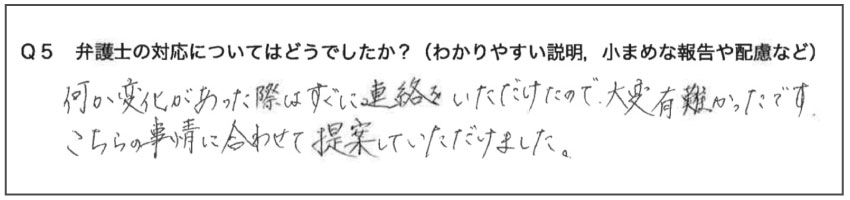 Q5 弁護士の対応についてはどうでしたか？（わかりやすい説明，小まめな報告や配慮など）
何か変化があった際はすぐに連絡をいただけたので、大変有難かったです.
こちらの事情に合わせて提案していただけました。